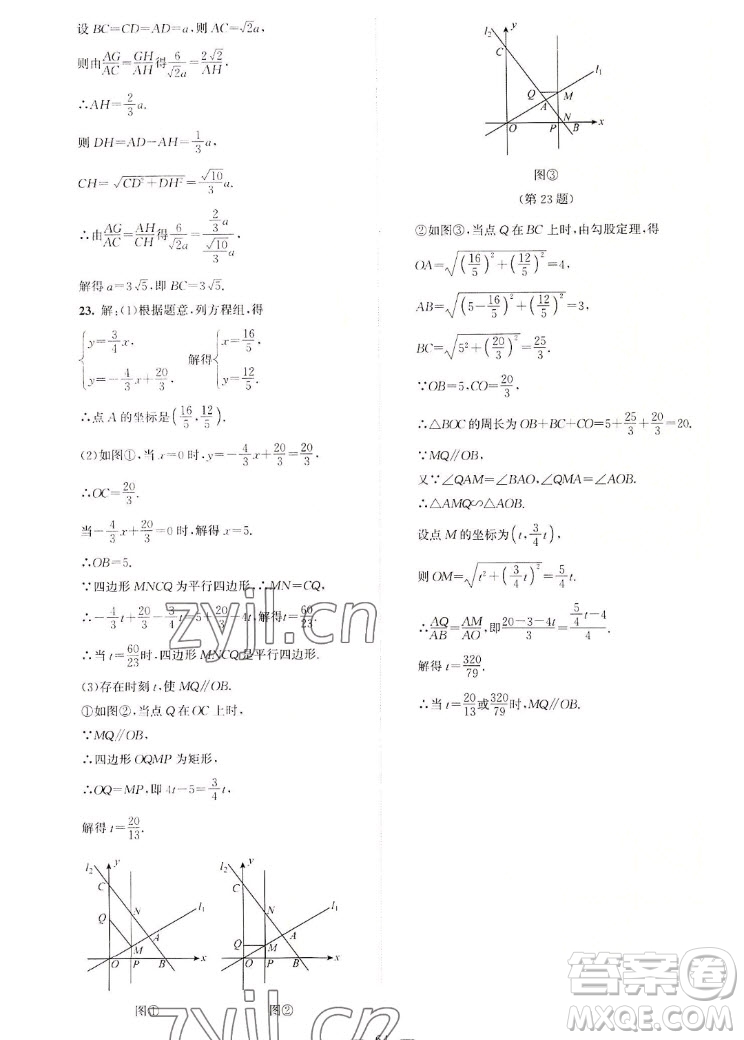 设 BC=CD=AD=a, 则 AC=√2a,
则由 AG/AC=GH/AH 得 6/(√2a)=2√2/AH.
∴AH=2/3a.
则 DH=AD−AH=1/3a.
CH=√(CD²+DH²)=√10/3a.
∴由 AG/AC=AH/CH 得 6/(√2a)=(2/3a)/(√10/3a).
解得 a=3√5, 即 BC=3√5.
23. 解:(1)根据题意,列方程组,得
{y=3/4x y=−4/3x+20/3 解得{x=16/5 y=12/5.
∴点 A 的坐标是(16/5,12/5).
(2)如图①,当 x=0 时, y=−4/3x+20/3=20/3.
∴OC=20/3.
当−4/3x+20/3=0 时,解得 x=5.
∴OB=5.
∵四边形 MNCQ 为平行四边形,∴MN=CQ,
∴−4/3t+20/3−3/4t=5+20/3−4t,解得 t=60/23.
∴当 t=60/23 时,四边形 MNCQ 是平行四边形.
(3)存在时刻 t,使 MQ∥OB.
①如图②,当点 Q 在 OC 上时,
∵MQ∥OB,
∴四边形 OQMP 为矩形,
∴OQ=MP,即 4t−5=3/4t,
解得 t=20/13.
l₂ y C Q N A M l₁ O P B x
图①
l₂ y C N A Q M l₁ O P B x
图②
l₂ y C Q M l₁ A N O P B x
图③
(第 23 题)
②如图③,当点 Q 在 BC 上时,由勾股定理,得
OA=√((16/5)²+(12/5)²)=4,
AB=√((5−16/5)²+(12/5)²)=3,
BC=√(5²+(20/3)²)=25/3.
∵OB=5,CO=20/3,
∴△BOC 的周长为 OB+BC+CO=5+25/3+20/3=20.
∵MQ∥OB,
又∵∠QAM=∠BAO,∠QMA=∠AOB.
∴△AMQ∽△AOB.
设点 M 的坐标为(t,3/4t),
则 OM=√(t²+(3/4t)²)=5/4t,
∴AQ/AB=AM/AO,即(20−3−4t)/3=(5/4t−4)/4.
解得 t=320/79.
∴当 t=20/13 或 320/79 时,MQ∥OB.
zyjl.cn
zyjl.cn
答案卷
zyjl.cn